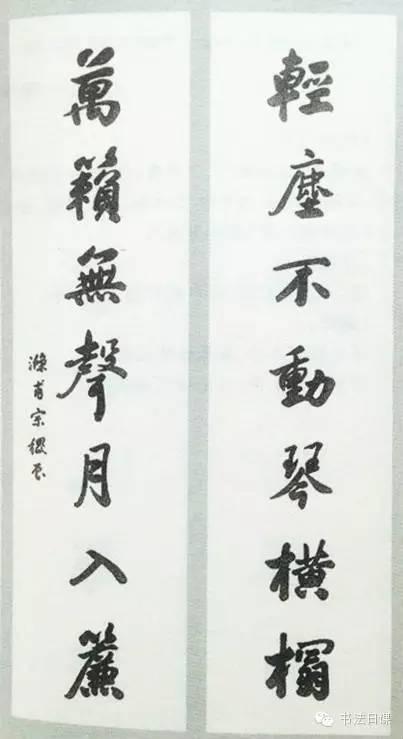 輕塵不動琴橫榻
萬籟無聲月入簾
滌甫宗稷辰
书法日课